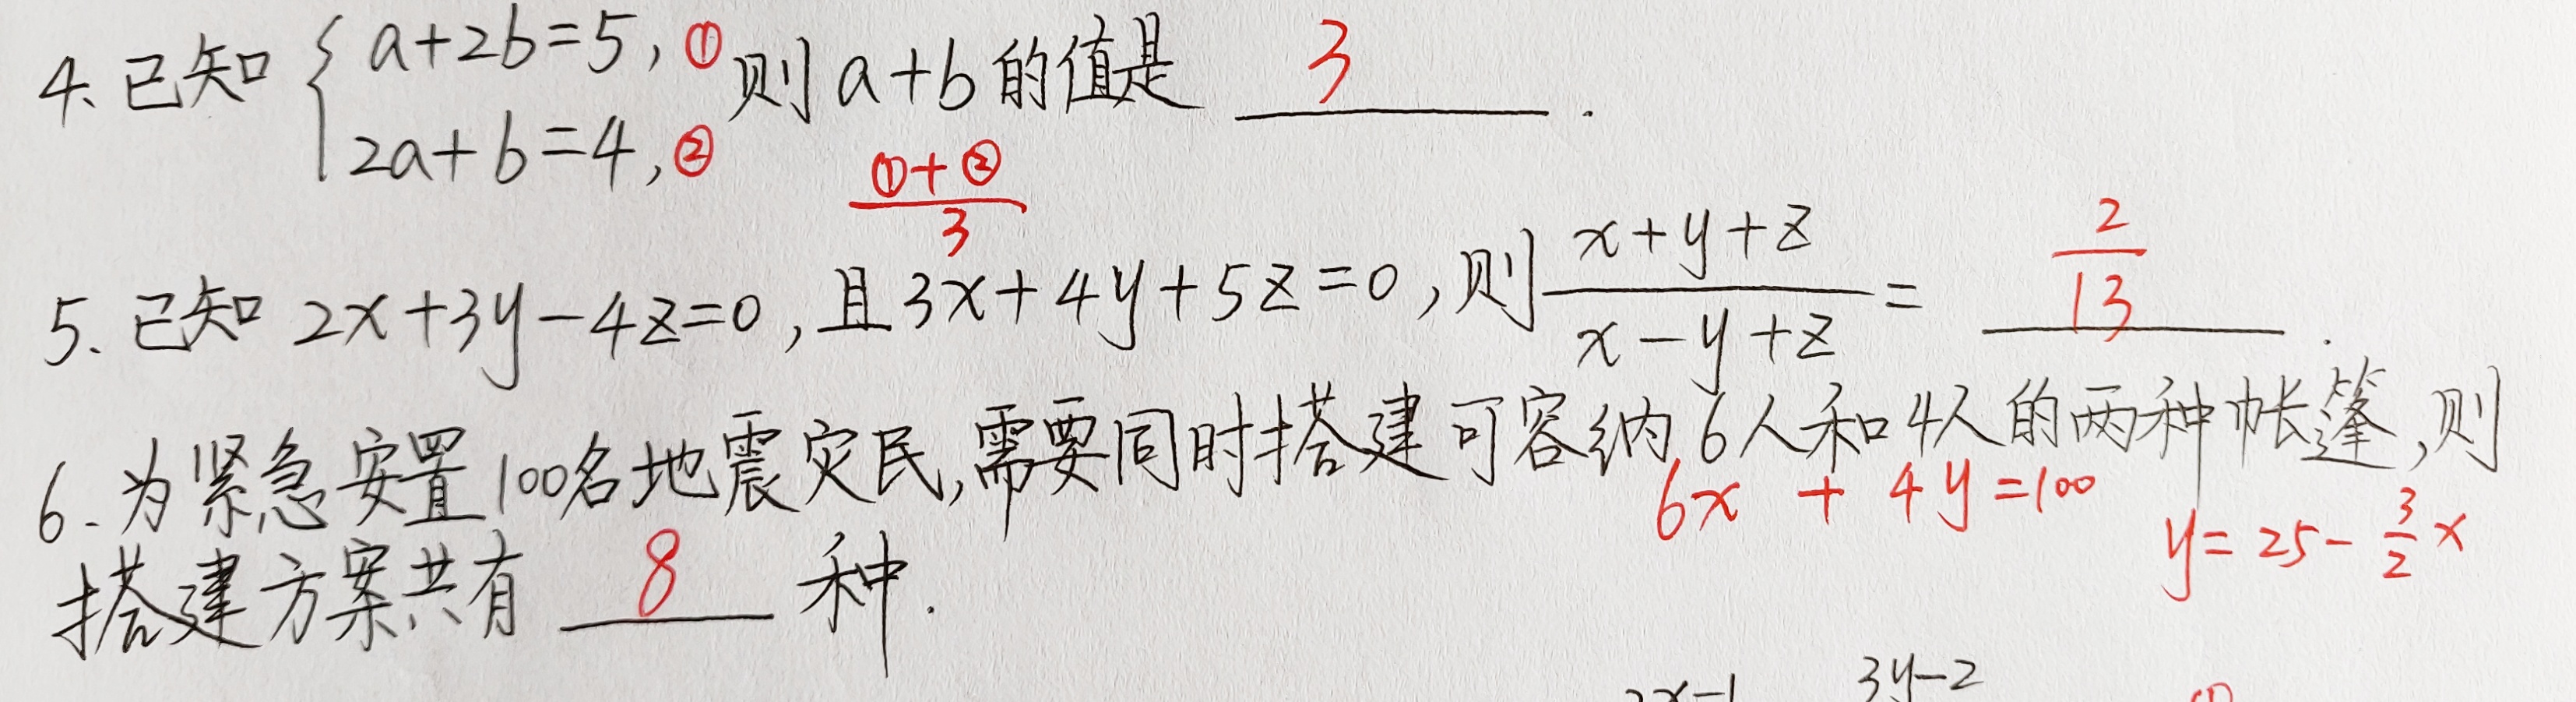 4. 已知 { a+2b=5, ① 2a+b=4, ② 则 a+b 的值是 3 .
(①+②)/3
5. 已知 2x+3y-4z=0, 且 3x+4y+5z=0, 则 (x+y+z)/(x-y+z) = 2/13 .
6. 为紧急安置100名地震灾民,需要同时搭建可容纳6人和4人的两种帐篷,则
6x + 4y=100 y=25-3/2x
搭建方案共有 8 种.
3y-2